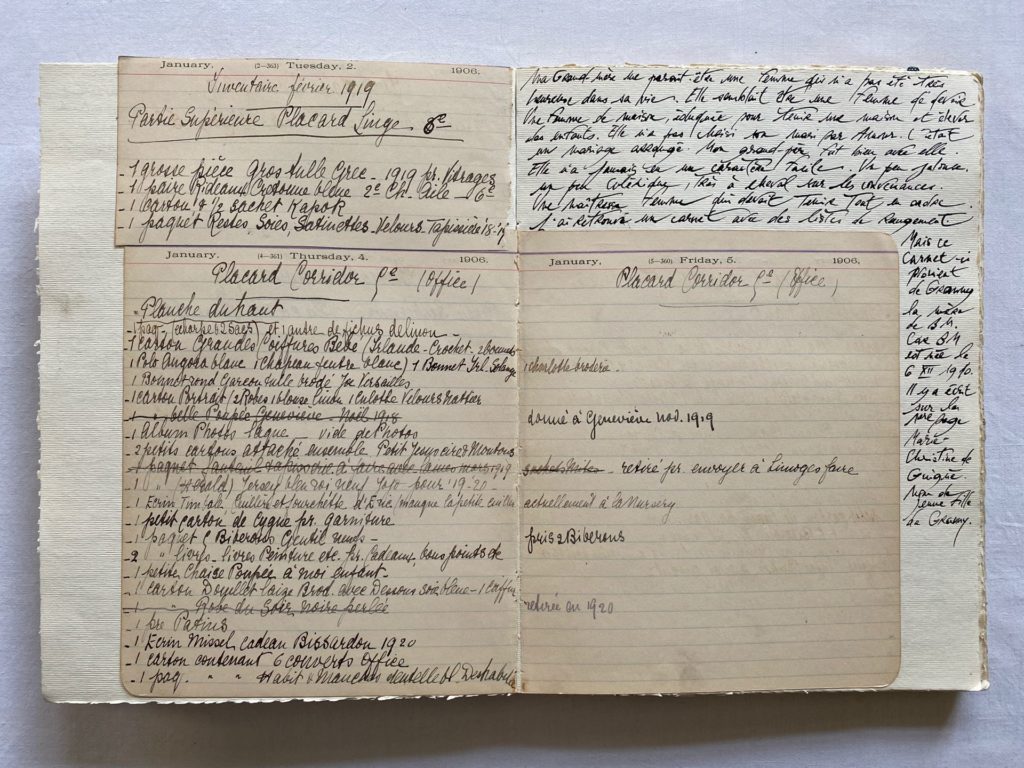 January, (2-363) Tuesday, 2. 1906.
Inventaire février 1919
Partie Supérieure Placard Linge
- 1 grosse pièce Gros tulle Grec - 1919 pr. Vitrages
- 1 paire Rideaux Cretonne bleue 2e Ch. Aile
- 1 Carton & 1/2 sachet Kapok
- 1 paquet Restes, Soies, Satinettes - Velours. Tapisserie 18-19
January, (4-361) Thursday, 4. 1906.
Placard Corridor (Office)
Planche du haut
- 1 paq. (écharpe & 2 sacs) et 1 autre de fichus de linon -
- 1 carton Grandes Coiffures Bébé (Irlande - Crochet - 2 bonnets
- 1 Polo Angora blanc 1 chapeau feutre blanc) 1 Bonnet Irl. Solange
- 1 Bonnet rond Garçon tulle brodé Versailles
- 1 carton Portrait / 2 Robes 1 blouse linon 1 culotte Velours Nattier
- 1 " belle Poupée Geneviève - Noël 1918
- 1 Album Photos laque vide de Photos
- 2 petits cartons attaché ensemble Petit Jésus cire & Moutons
- 1 paquet fauteuil tapisserie à faire mars 1919
- 1 " Jersey bleu roi neuf pour 19-20
- 1 Ecrin Timbale Cuiller et fourchette d'Eric (manque la petite cuiller
- 1 petit carton de cygne pr. garniture
- 1 paquet 6 Biberons Gentil neufs -
- 2 " livres - livres Peinture etc. pr. Cadeaux, bons points etc
- 1 petite Chaise Poupée à moi enfant -
- 1 carton Douillet laize Brod. avec Dessous soie bleue - 1 Coiffure
- 1 " Robe du Soir noire perlée
- 1 pre Patins
- 1 Ecrin Missel cadeau Bissardon 1920
- 1 carton contenant 6 couverts Office
- 1 paq. " " Habit & Manches dentelle
Ma Grand mère me parait être une femme qui n'a pas été très
heureuse dans sa vie. Elle semblait être une femme de devoir
Une femme de maison, éduquée pour tenir une maison et élever
des enfants. Elle n'a pas choisi son mari par Amour. C'était
un mariage arrangé. Mon grand père fut bien avec elle.
Elle n'a jamais eu un caractère facile. Un peu jalouse,
un peu colérique, très à cheval sur les convenances.
Une maîtresse femme qui devait tenir tout en ordre.
J'ai retrouvé un carnet avec des listes de rangement
Mais ce
Carnet-ci
provient
de Granny
la mère
de B.M.
Car B.M
est née le
6 XII 1910.
Il y a écrit
sur la
1ère page
Marie-
Christine de
Guigné.
nom de
jeune fille
de Granny.
January, (5-360) Friday, 5. 1906.
Placard Corridor (Office)
1 charlotte broderie.
donné à Geneviève nov. 1919
- retiré pr. envoyer à Limoges faire
actuellement à la Nursery
pris 2 Biberons
retirée en 1920